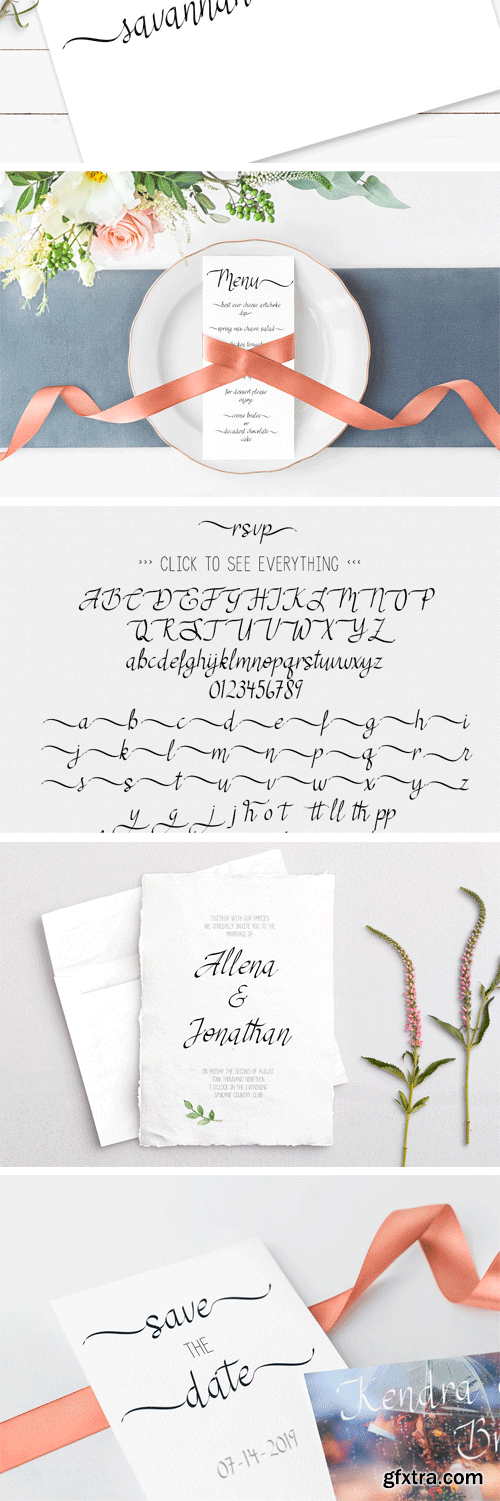 savannah
Menu
best ever cheese artichoke
dip
spring mix chevre salad
for dessert please
enjoy
creme brulee
or
decadent chocolate
cake
rsvp
››› CLICK TO SEE EVERYTHING ‹‹‹
ABCDEFGHIJKLMNOP
QRSTUVWXYZ
abcdefghijklmnopqrstuvwxyz
0123456789
a b c d e f g h i
j k l m n p q r r
s s t u v w x y z
y g j j h o t tt ll th pp
TOGETHER WITH OUR FAMILIES
WE CORDIALLY INVITE YOU TO THE
MARRIAGE OF
Allena
&
Jonathan
ON FRIDAY THE SECOND OF AUGUST
TOW THOUSAND NINETEEN
7 O'CLOCK IN THE EVENENING
SPOKANE COUNTRY CLUB
save
THE
date
07-14-2019
Kendra
gfxtra.com